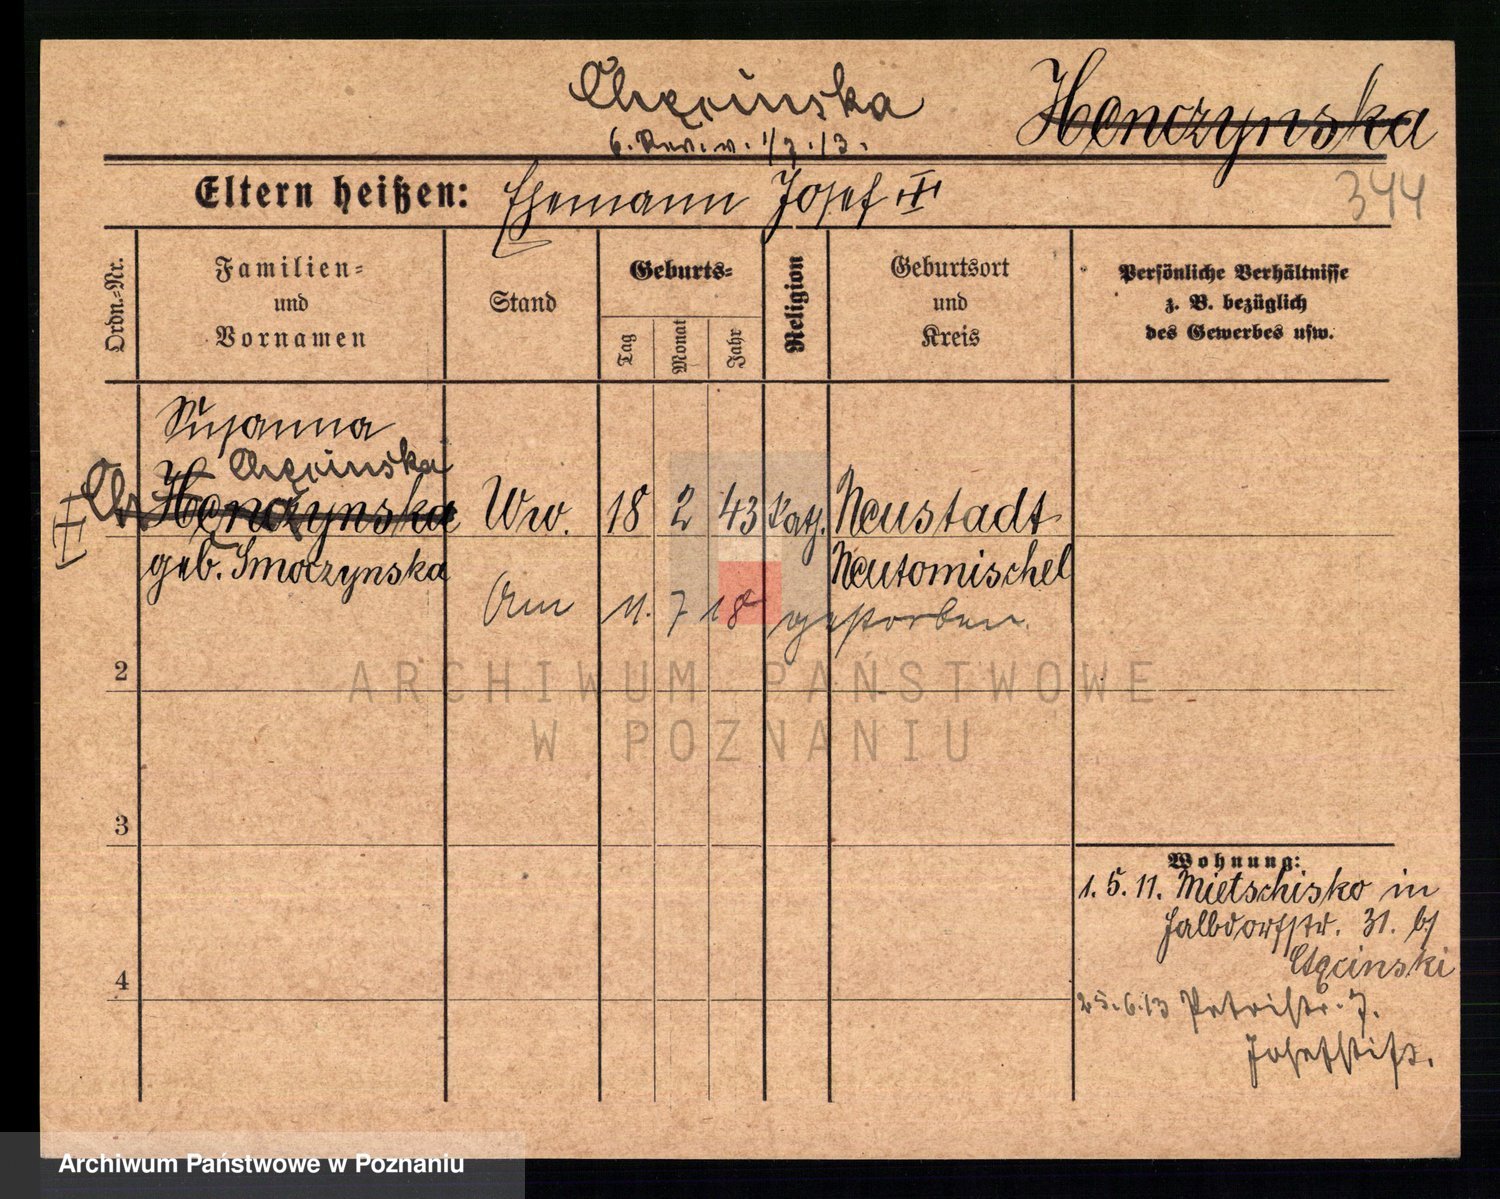 Chęcinska
Henczynska
6. Rev. v. 1/7.13.
Eltern heißen: Ehemann Josef
344
Ordn.-Nr.
Familien-
und
Vornamen
Stand
Geburts-
Tag
Monat
Jahr
Religion
Geburtsort
und
Kreis
Persönliche Verhältnisse
z. B. bezüglich
des Gewerbes usw.
Susanna
Chęcinska
Ch Henczynska Ww. 18 2 43 kath. Neustadt
geb. Smoczynska Neutomischel
Am 11. 7 18 gestorben.
2
3
4
Wohnung:
1. 5. 11. Mietschisko in
Halbdorfstr. 31. b/
Chęcinski
25.6.13 Petristr. 7.
Josefstift.
ARCHIWUM PAŃSTWOWE
W POZNANIU
Archiwum Państwowe w Poznaniu